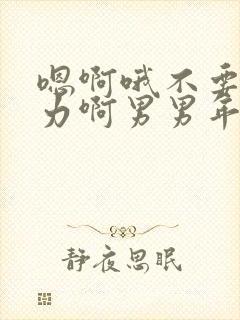 嗯啊哦不要
力啊男男年
静夜思眠